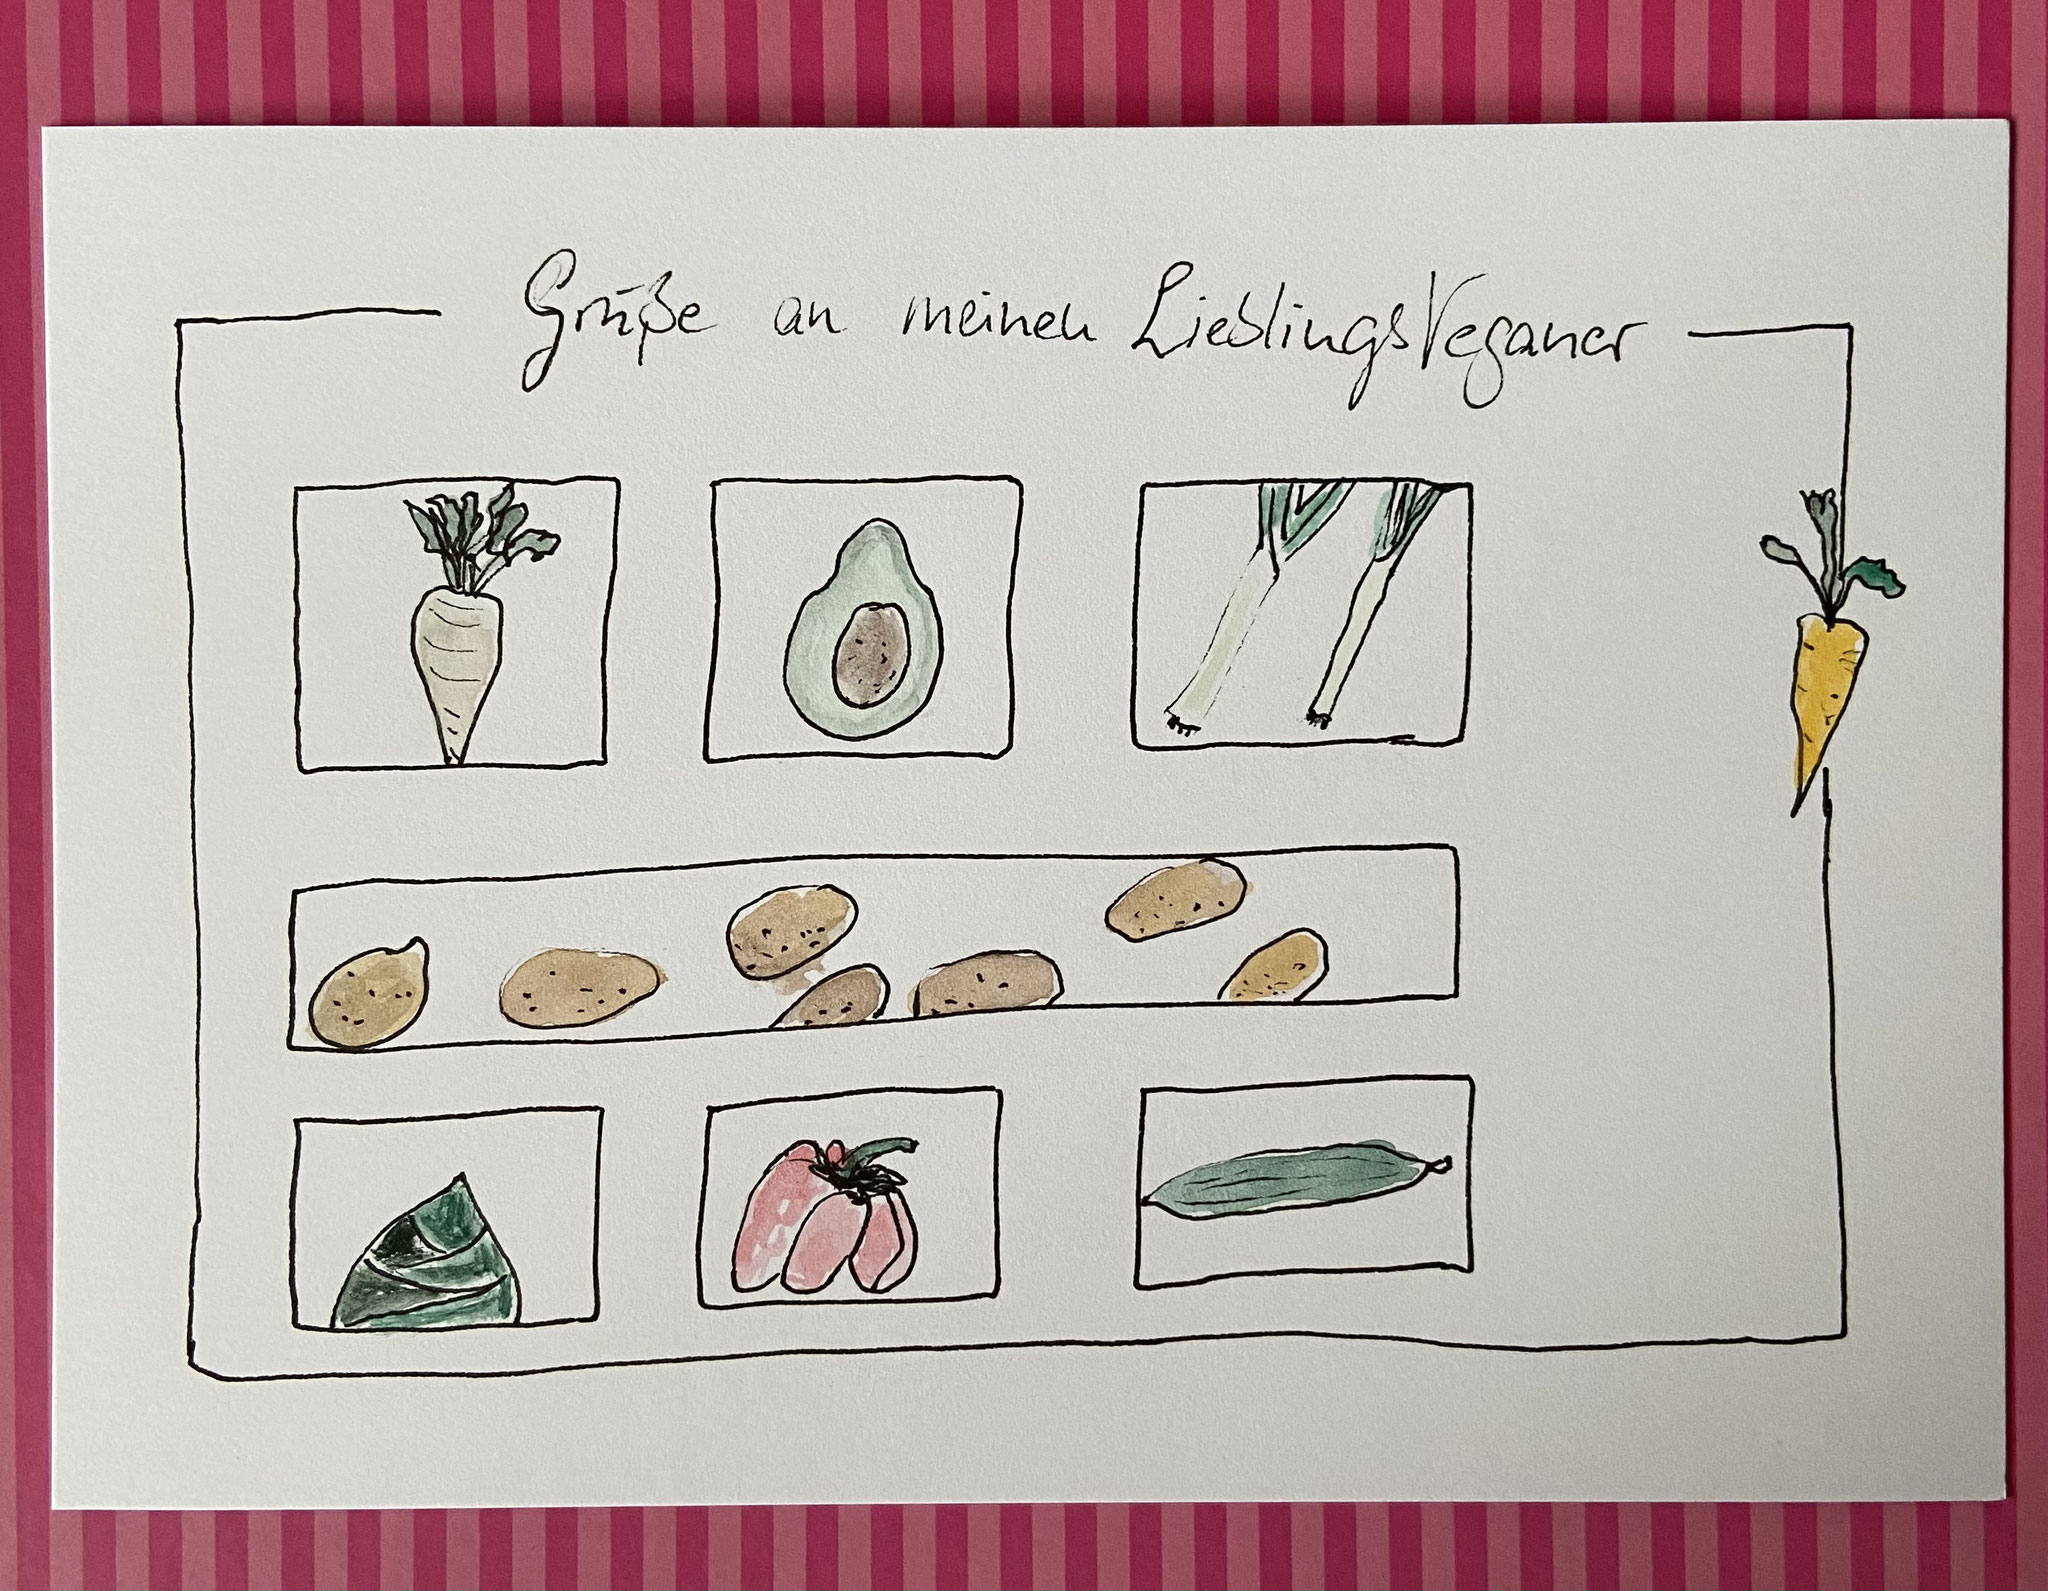 Grüße an meinen LieblingsVeganer